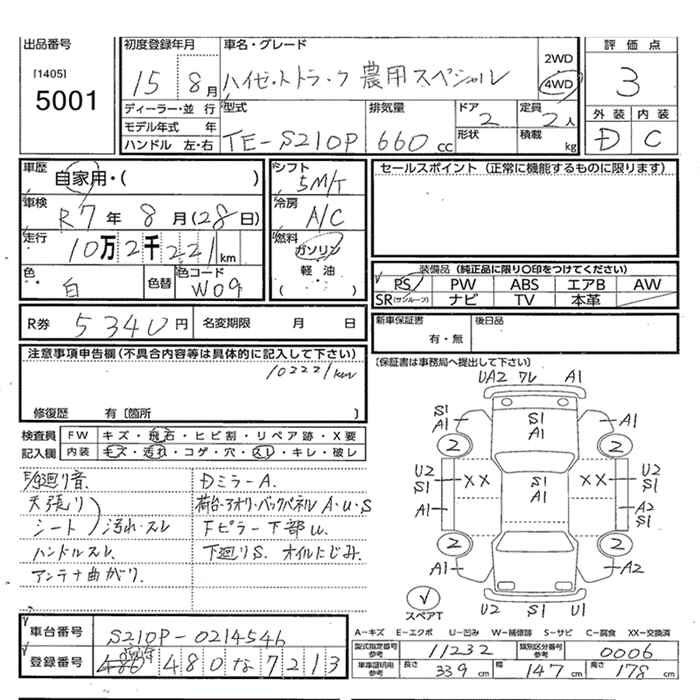 出品番号
[1405]
5001
初度登録年月
15 8月
車名・グレード
ハイゼットトラック 農用スペシャル
2WD
4WD
評価点
3
外装 内装
D C
ディーラー・並行
モデル年式 年
ハンドル 左・右
型式
TE-S210P
排気量
660 cc
ドア
2
形状
定員
2人
積載
kg
車歴
自家用・( )
車検
R7年 8月(28日)
走行
10万2千221km
色
白
色替
色コード
W09
シフト
5M/T
冷房
A/C
燃料
ガソリン
軽油
( )
セールスポイント (正常に機能するものに限ります)
装備品 (純正品に限り○印をつけてください)
PS PW ABS エアB AW
SR(サンルーフ) ナビ TV 本革
R券 5340円 名変期限 月 日
新車保証書
有・無
後日品
(保証書は事務局へ提出して下さい)
注意事項申告欄(不具合内容等は具体的に記入して下さい)
102221km
修復歴 有〔箇所 〕
検査員 FW キズ・飛石・ヒビ割・リペア跡・X要
記入欄 内装 キズ・汚れ・コゲ・穴・スレ・キレ・破レ
天張り
シート 汚れ・スレ
ハンドルスレ
アンテナ曲がり.
DミラーA.
荷台・アオリ・バックパネルA・U・S
Fピラー下部U.
下廻りS. オイルにじみ.
UA2 ワレ A1
S1
A1
S1
A1
A1
2
2
U2
S1
A1
XX
S1
A1
XX
U2
S1
A2
S1
2
2
A1
A2
スペアT
U2 S1 U1
車台番号 S210P-0214546
登録番号 480な7213
A-キズ E-エクボ U-凹み W-補修跡 S-サビ C-腐食 XX-交換済
型式指定番号
参考
11232
類別区分番号
参考
0006
車庫証明用
参考
長さ 339cm 幅 147cm 高さ 178cm